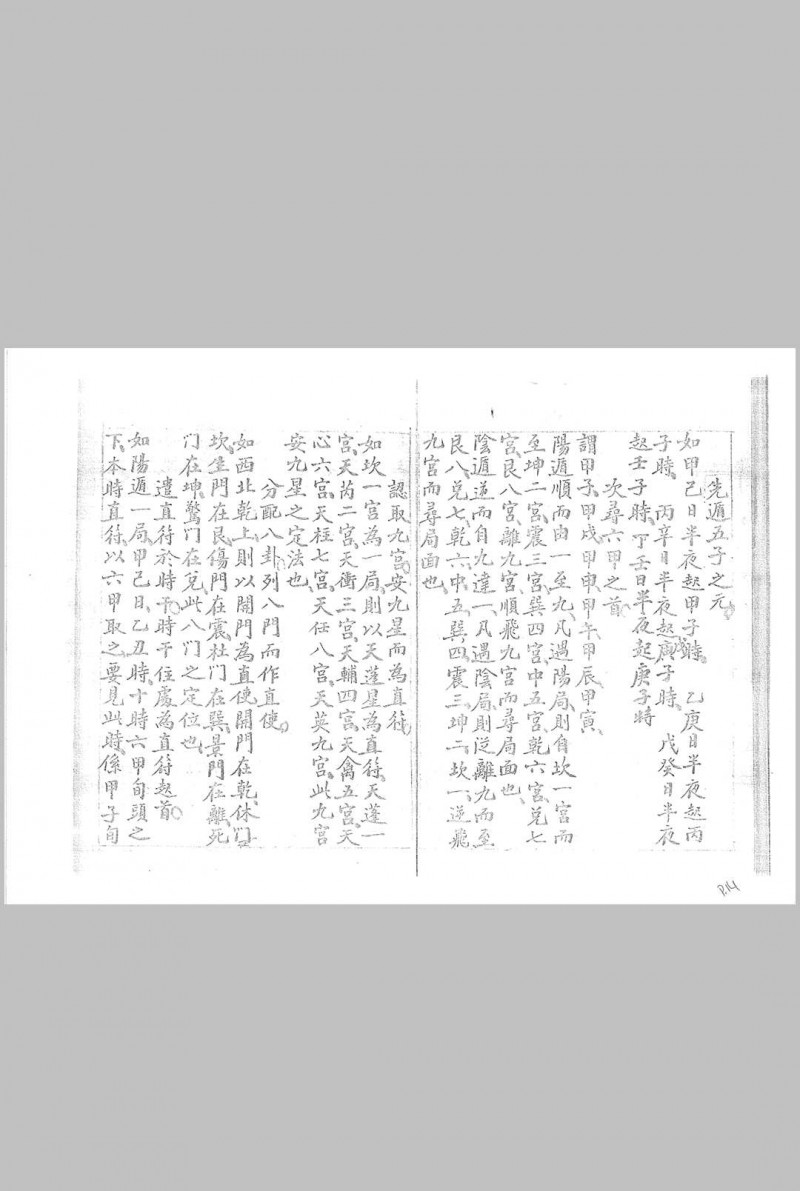 先遁五子之元
如甲己日半夜起甲子時、乙庚日半夜起丙
子時、丙辛日半夜起庚子時、戊癸日半夜
起壬子時、丁壬日半夜起庚子時
次尋六甲之首
謂甲子、甲戌、甲申、甲午、甲辰、甲寅、
陽遁順而由一至九、凡遇陽局、則自坎一宮而
至坤二宮、震三宮、巽四宮、中五宮、乾六宮、兌七
宮、艮八宮、離九宮、順飛九宮而尋局面也、
陰遁逆而自九達一、凡遇陰局、則從離九而至
艮八、兌七、乾六、中五、巽四、震三、坤二、坎一、逆飛
九宮而尋局面也、
認取九宮、安九星而為直符
如坎一宮為一局、則以天蓬星為直符、天蓬一
宮、天芮二宮、天衝三宮、天輔四宮、天禽五宮、天
心六宮、天柱七宮、天任八宮、天英九宮、此九宮
安九星之定法也、
分配八卦列八門而作直使
如西北乾上、則以開門為直使、開門在乾、休門
坎、生門在艮、傷門在震、杜門在巽、景門在離、死
門在坤、驚門在兌、此八門之定位也、
遣直符於時干、時干住處為直符起首
如陽遁一局、甲己日、乙丑時、十時六甲旬頭之
下、本時直符、以六甲取之、要見此時、係甲子旬
P.14